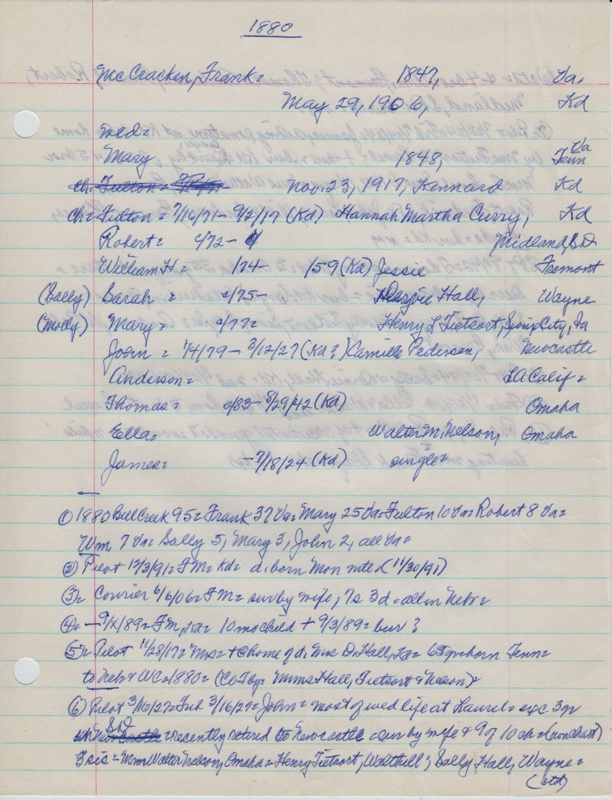 1880
McCracken, Frank = 1847, Va.
May 29, 1906, Kd
wed =
Mary 1848, Va Tenn
ch: Fulton = Nov. 23, 1917, Kennard Kd
ch = Fulton = 7/16/71 - 9/2/17 (Kd) Hannah Martha Curry, Kd
Robert = 4/72 - Midland, S.D.
William H = /74 - /59 (Kd) Jessie Fremont
(Sally) Sarah = 2/75 - Hall, Wayne
(Mody) Mary = 2/77 = Henry L Tietsort, Sioux City, Ia
John = 1/4/79 - 3/12/27 (Kd?) Camilla Pedersen, Newcastle
Anderson = LA Calif =
Thomas = 9/83 - 8/29/42 (Kd) Omaha
Ella = Walter M. Nelson, Omaha
James = - 7/18/24 (Kd) single =
① 1880 Bell Creek 95 = Frank 37 Va = Mary 25 Va = Fulton 10 Va = Robert 8 Va =
Wm 7 Va = Sally 5, Mary 3, John 2, all Va =
② Pilot 12/3/91 = FM = Kd = d. born Mon nite (11/30/91)
③ = Courier 6/6/06 = FM = surby wife, 7s 3d = all in Nebr =
④ = 9/x/89 = Fm, = 10 mo child + 9/3/89 = bur ?
5 = Pilot 11/28/17 = Mrs = + @ home of d. Mrs D. Hall, = 69 yr born Tenn =
to Nebr + WC = 1880 = (Co Tay = Mmes Hall, Tietsort & Nelson)
⑥ Pilot 3/16/27 = Fub 3/16/27 = John = most of wed life at Laurel = exc 3 yr
SD = recently retird to Newcastle = sur by wife & 9 of 10 ch =
3 sis = Mmes Walter Nelson, Omaha = Henry Tietsort, Walthill; Sally Hall, Wayne =
(ctd)